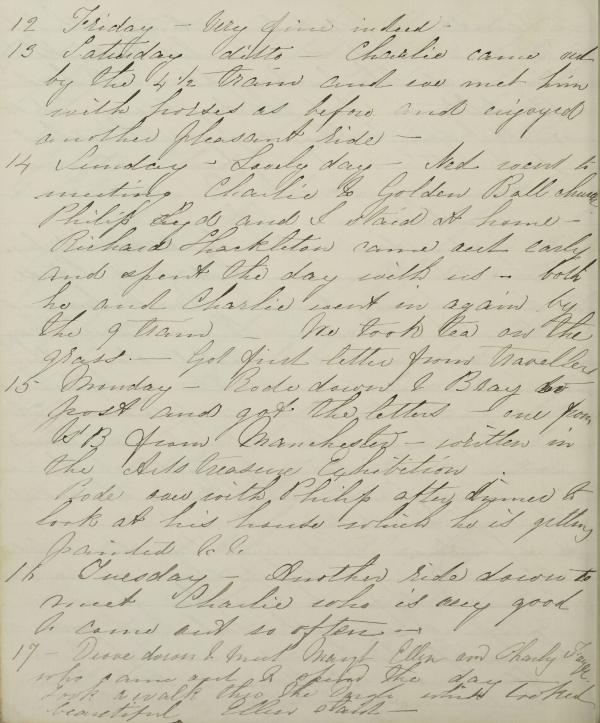 12 Friday - Very fine indeed -
13 Saturday ditto - Charlie came out
by the 4½ train and we met him
with horses as before and enjoyed
another pleasant ride -
14 Sunday - Lovely day - Ned went to
meeting Charlie to Golden Ball church
Philip Lyd and I staid at home -
Richard Shackleton came out early
and spent the day with us - both
he and Charlie went in again by
the 9 train - We took tea on the
grass. - Got first letter from travellers
15 Monday - Rode down to Bray to
post and got the letters - one from
from Manchester - written in
the Arts treasure Exhibition
Rode over with Philip after dinner to
look at his house which he is getting
painted &c &c
16 Tuesday - Another ride down to
meet Charlie who is very good
to come out so often -
17 - Drove down to meet Margt Ellen and Charly
who came out to spend the day -
took a walk thro the which looked
beautiful Ellen staid -